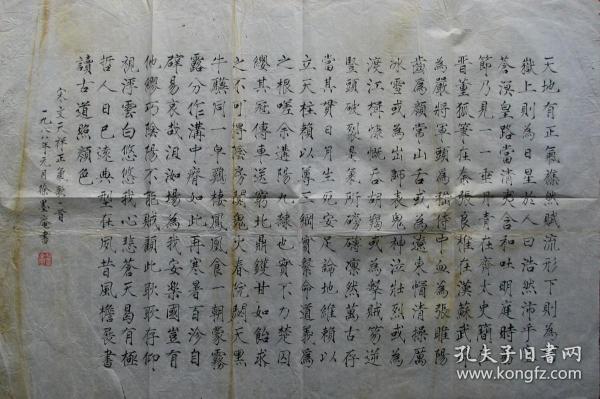 天地有正氣雜然賦流形下則為河
嶽上則為日星於人曰浩然沛乎塞
蒼冥皇路當清夷含和吐明庭時窮
節乃見一一垂丹青在齊太史簡在
晉董狐筆在秦張良椎在漢蘇武節
為嚴將軍頭為嵇侍中血為張睢陽
齒為顏常山舌或為遼東帽清操厲
冰雪或為出師表鬼神泣壯烈或為
渡江楫慷慨吞胡羯或為擊賊笏逆
豎頭破裂是氣所磅礴凜然萬古存
當其貫日月生死安足論地維賴以
立天柱賴以尊三綱實繫命道義為
之根嗟余遘陽九隸也實不力楚囚
纓其冠傳車送窮北鼎鑊甘如飴求
之不可得陰房闃鬼火春院閟天黑
牛驥同一皁雞棲鳳凰食一朝蒙霧
露分作溝中瘠如此再寒暑百沴自
辟易哀哉沮洳場為我安樂國豈有
他繆巧陰陽不能賊顧此耿耿存仰
視浮雲白悠悠我心悲蒼天曷有極
哲人日已遠典型在夙昔風檐展書
讀古道照顏色
宋文天祥正氣歌一首
一九八八年元月徐書
孔夫子旧书网
www.kongfz.com